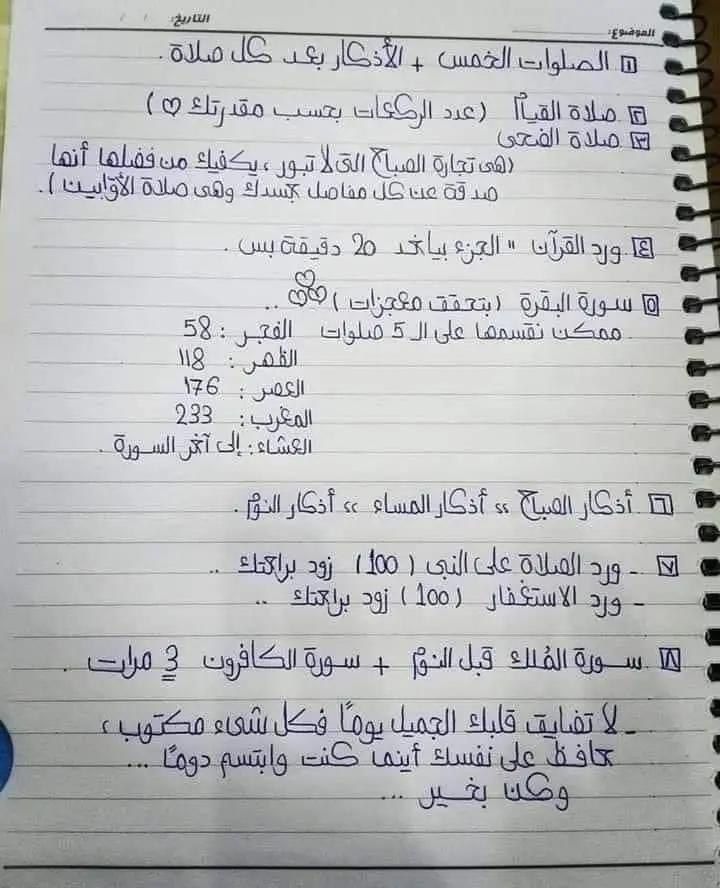 الموضوع: التاريخ: / /
١ الصلوات الخمس + الأذكار بعد كل صلاة .
٢ صلاة القيام (عدد الركعات بحسب مقدرتك ♡)
٣ صلاة الضحى
(هى تجارة الصباح التى لا تبور ، يكفيك من فضلها أنها
صدقة عن كل مفاصل جسدك وهى صلاة الأوّابين ).
٤ ورد القرآن " الجزء بياخد 20 دقيقة بس .
٥ سورة البقرة (بتحقق معجزات) ♡♡♡ ..
ممكن نقسمها على الـ 5 صلوات الفجر : 58
الظهر : 118
العصر : 176
المغرب : 233
العشاء : إلى آخر السورة .
٦ أذكار الصباح ,, أذكار المساء ,, أذكار النوم .
٧ - ورد الصلاة على النبى (100) زود براحتك ..
- ورد الاستغفار (100) زود براحتك ..
٨ سورة المُلك قبل النوم + سورة الكافرون 3 مرات .
- لا تضايق قلبك الجميل يومًا فكل شىء مكتوب ،
حافظ على نفسك أينما كنت وابتسم دومًا ...
وكن بخير ...